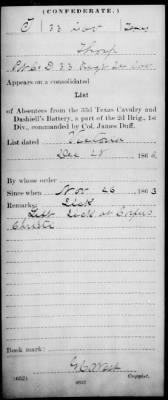 (CONFEDERATE.)
T 33 Cav Texas
Pvt Co D 33 Regt Tex Cav
Appears on a consolidated
List
of Absentees from the 33d Texas Cavalry and
Dashiell's Battery, a part of the 2d Brig., 1st
Div., commanded by Col. James Duff.
List dated Victoria
Dec 28 186
By whose order
Since when Nov 26 1863
Remarks: Sick
Left Sick at Corpus
Christi
Book mark:
Copyist.